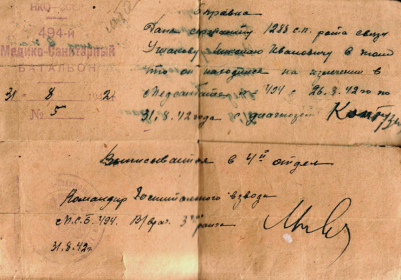 НКО-СССР
494-й
Медико-Санитарный
БАТАЛЬОН
31 8 1942
№ 5
Справка
Дана сержанту 1288 с.п. рота связи
Ушакову Михаилу Ивановичу в том
что он находился на излечении в
Медсанбате № 494 с 26.8.42г. по
31.8.42 года диагнозом
Выписывается в 4й отдел
Командир Госпитального взвода
МСБ. 494. В/врач 3го ранга
31.8.42г.